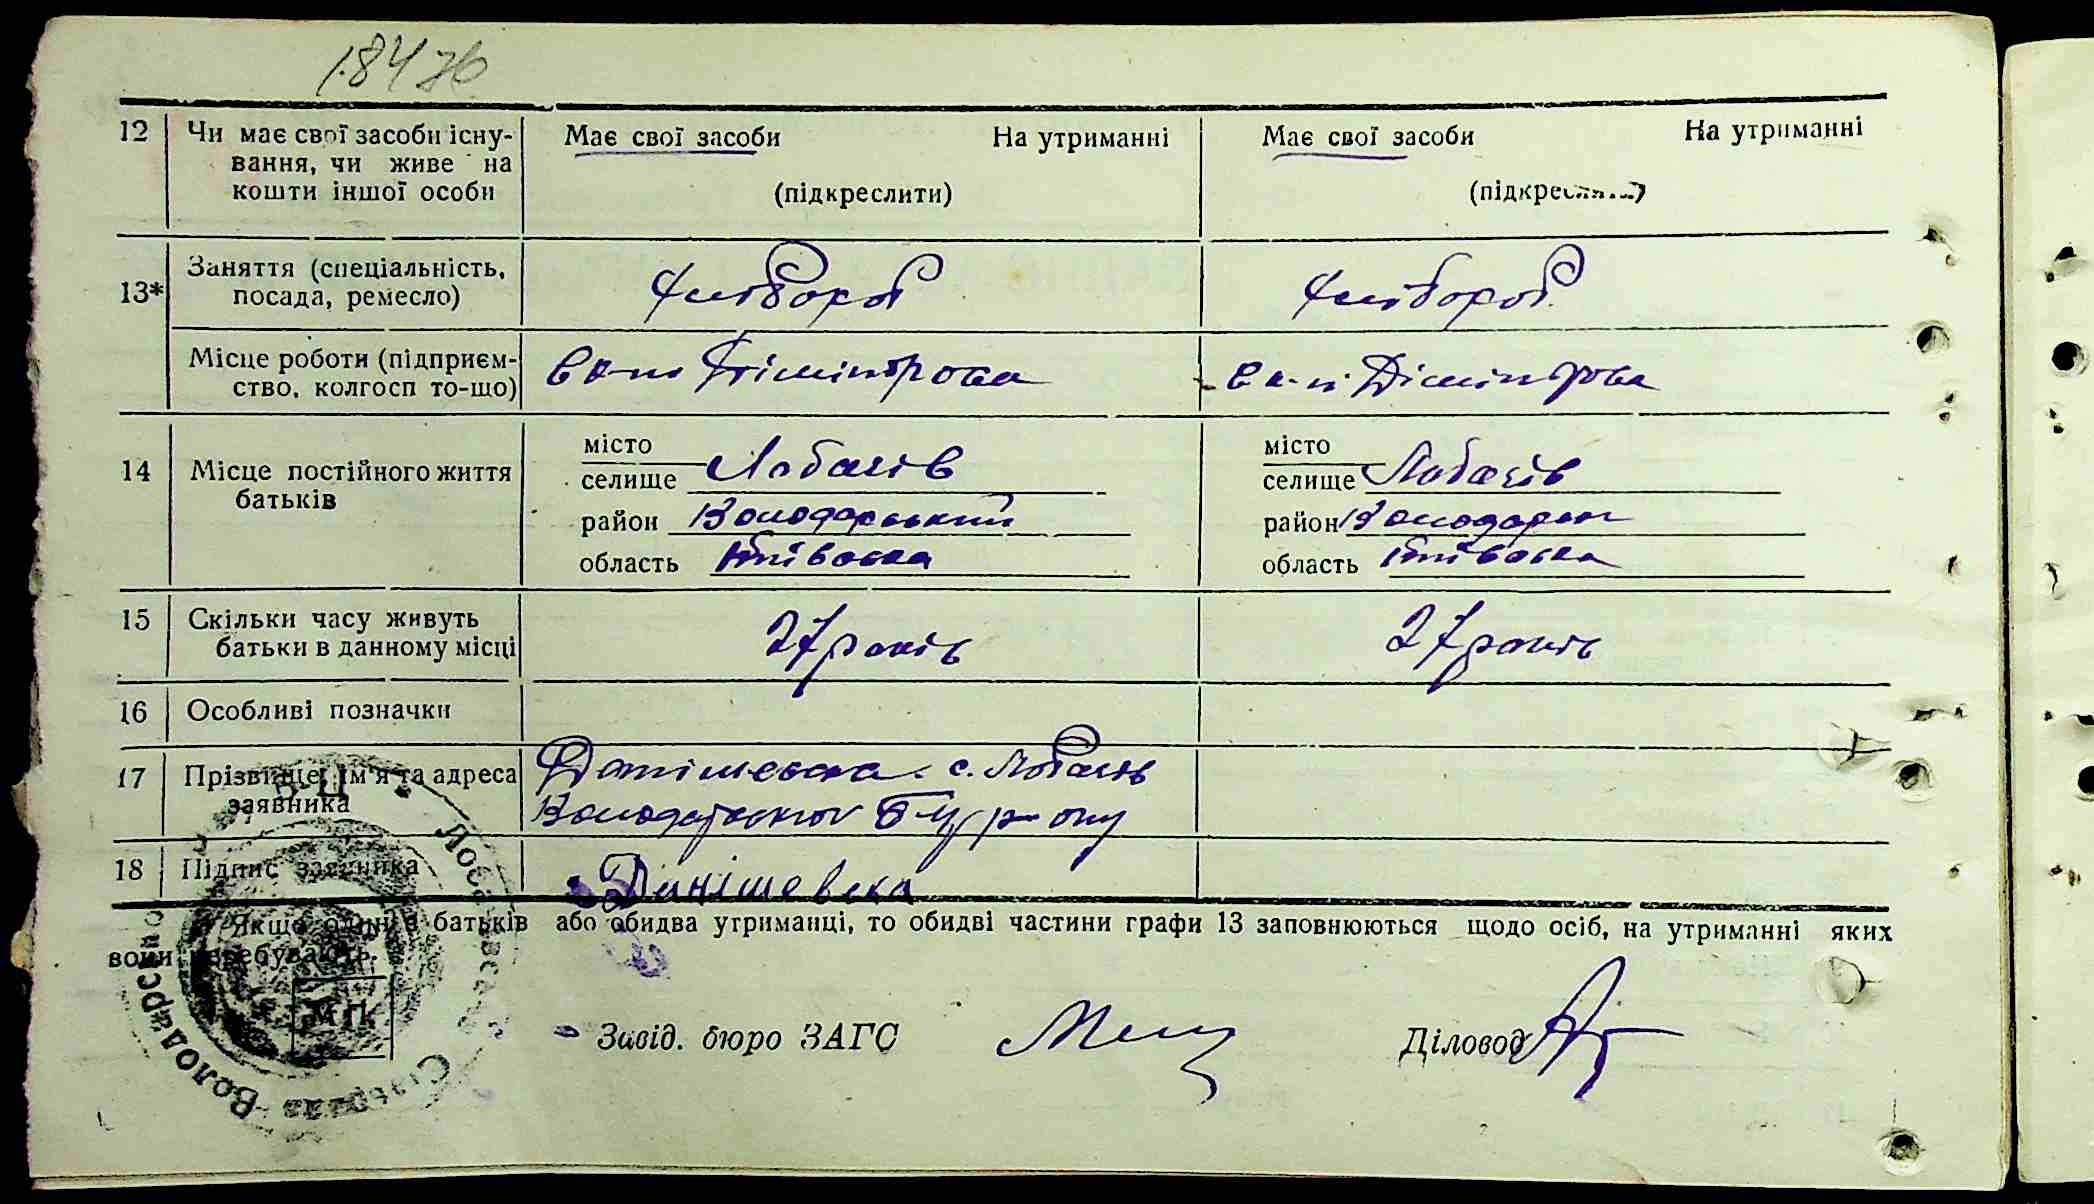 18476
12 Чи має свої засоби існу- Має свої засоби На утриманні Має свої засоби На утриманні
вання, чи живе на
кошти іншої особи (підкреслити) (підкреслити)
13* Заняття (спеціальність, хлібороб хлібороб
посада, ремесло)
Місце роботи (підприєм- в к-пі Дімітрова в к-пі Дімітрова
ство, колгосп то-що)
місто місто
14 Місце постійного життя селище Лобачів селище Лобачів
батьків район Володарський район Володарськ
область Київська область Київська
15 Скільки часу живуть 27 років 27 років
батьки в данному місці
16 Особливі позначки
17 Прізвище, ім'я та адреса Данішевська с. Лобачів
заявника Володарського р-ону
18 Підпис заявника Данішевська
Якщо один з батьків або обидва утриманці, то обидві частини графи 13 заповнюються щодо осіб, на утриманні яких
вони перебувають.
М П
Завід. бюро ЗАГС Діловод